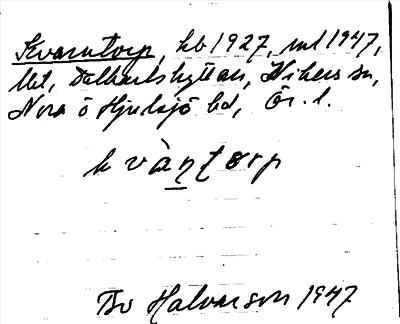 Kvarntorp, kb 1927, ml 1947,
lht, Dalkarlshyttan, Vikers sn,
Nora o Hjulsjö bd, Ör. l.
kvàṇṭorp
Bo Halvarson 1947